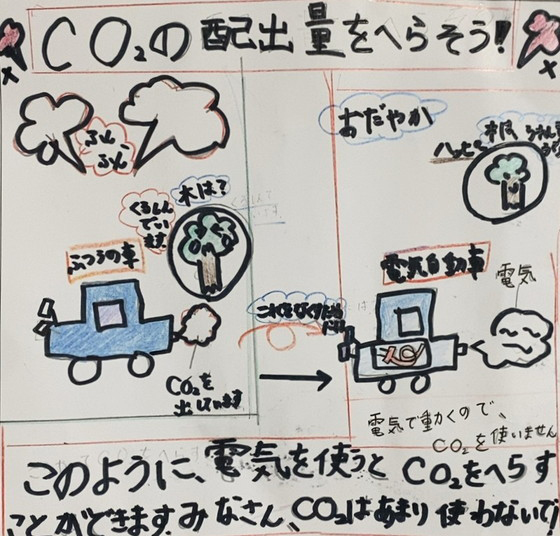 CO₂の配出量をへらそう!
ぷんぷん
おだやか
木は?
くるしんでいます
ふつうの車
電気自動車
電気
CO₂を出しています
電気で動くので、
CO₂を使いません
このように、電気を使うとCO₂をへらす
ことができます。みなさん、CO₂はあまり使わないで!